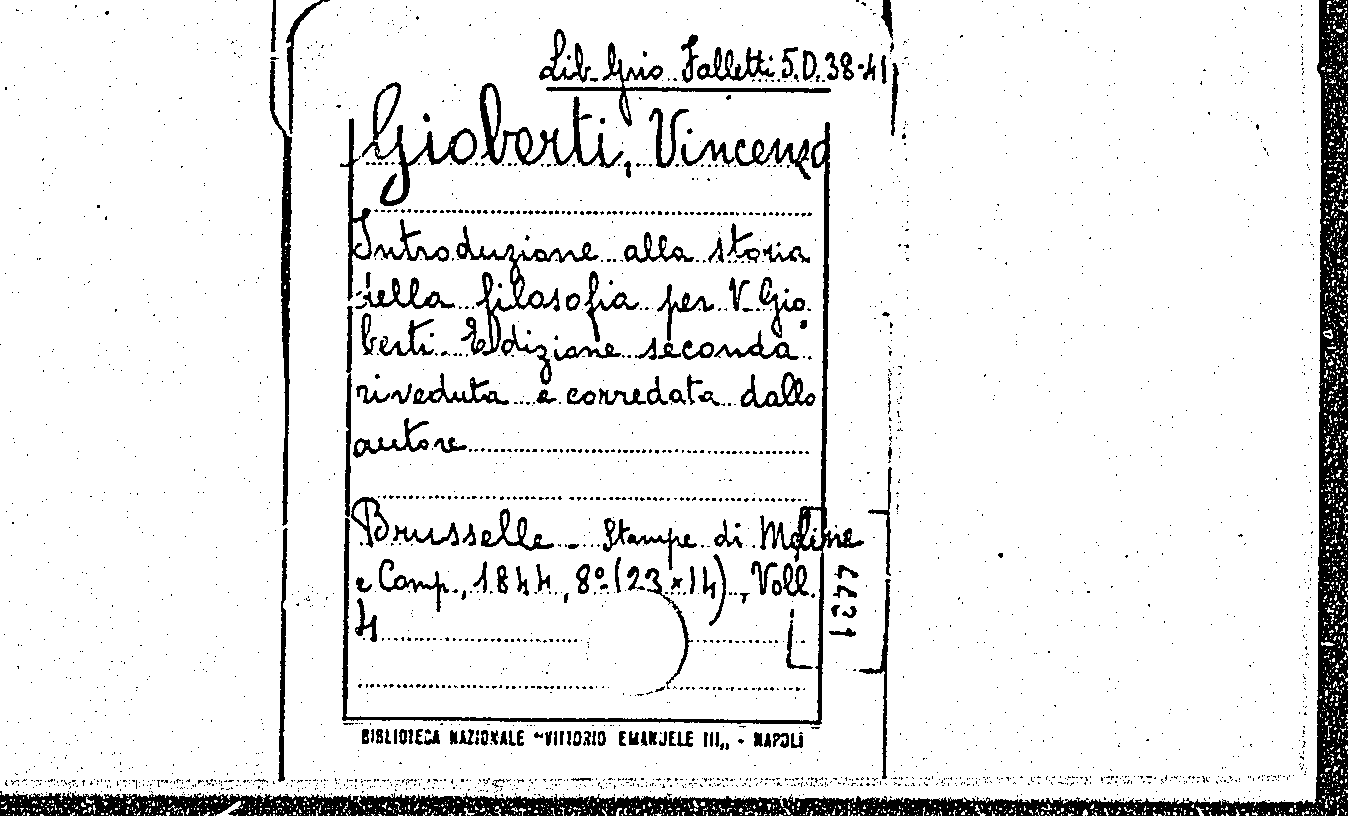 Lib. Grio Falletti 5.D.38-41
Gioberti, Vincenzo
Introduzione alla storia
della filosofia per V. Gio
berti. Edizione seconda
riveduta e corredata dallo
autore
Brusselle - Stampe di Meline
e Comp., 1844, 8º (23x14), Voll.
4
BIBLIOTECA NAZIONALE "VITTORIO EMANUELE III„ - NAPOLI